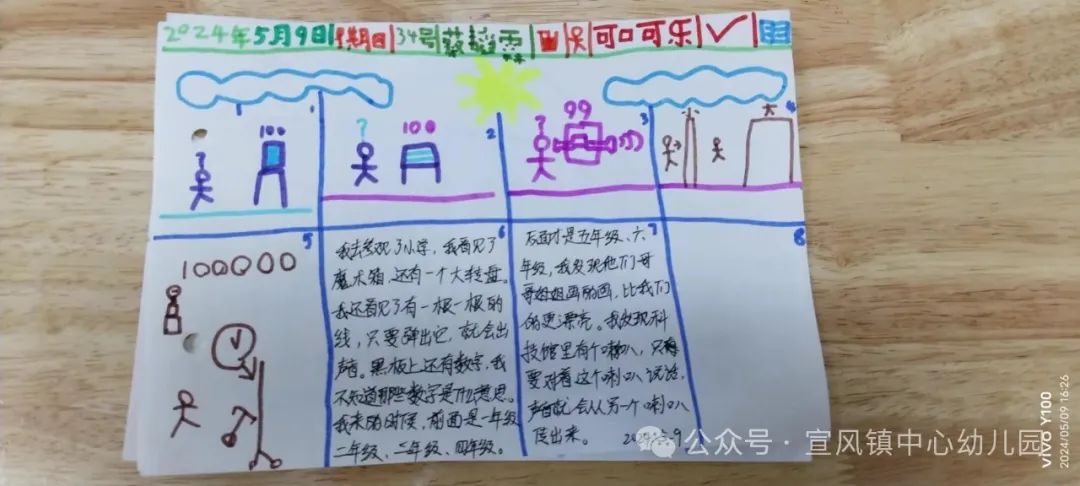 2024年5月9日 星期四 34号 蔡韬霖 可口可乐 ✓
1
100
?
2
100
?
3
99
?
4
5
100000
6
我去参观了小学，我看见了
魔术箱，还有一个大转盘。
我还看见了有一根一根的
线，只要弹出它，就会出
声音。黑板上还有数字，我
不知道那些数字是什么意思。
我来的时候，前面是一年级
二年级、三年级、四年级。
7
后面才是五年级、六
年级，我发现他们哥
哥姐姐画的画，比我们
的更漂亮。我发现科
技馆里有个喇叭，只
要对着这个喇叭说话，
声音就会从另一个喇叭
传出来。 2024.5.9
8
公众号·宣风镇中心幼儿园
vivo Y100
2024/05/09 16:26